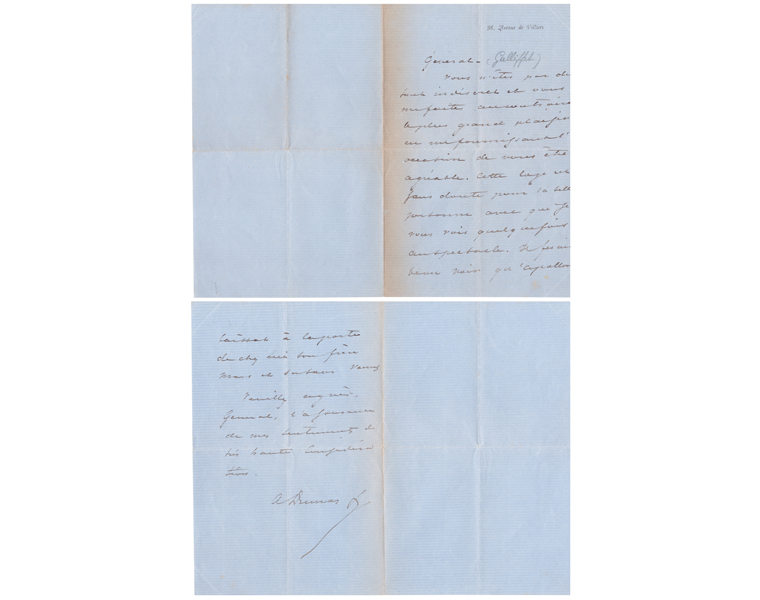 Général - (Galliffet)
Vous n'êtes pas du
tout indiscret et vous
me faites au contraire
le plus grand plaisir
en me fournissant l'
occasion de vous être
agréable. Cette loge
sans doute pour la belle
personne avec qui je
vous vois quelquefois
au spectacle. Je
laissât à la porte
de chez son frère
mais
Veuillez agréer,
Général, l'assurance
de mes sentiments de
très haute considéra
tion.
A Dumas f